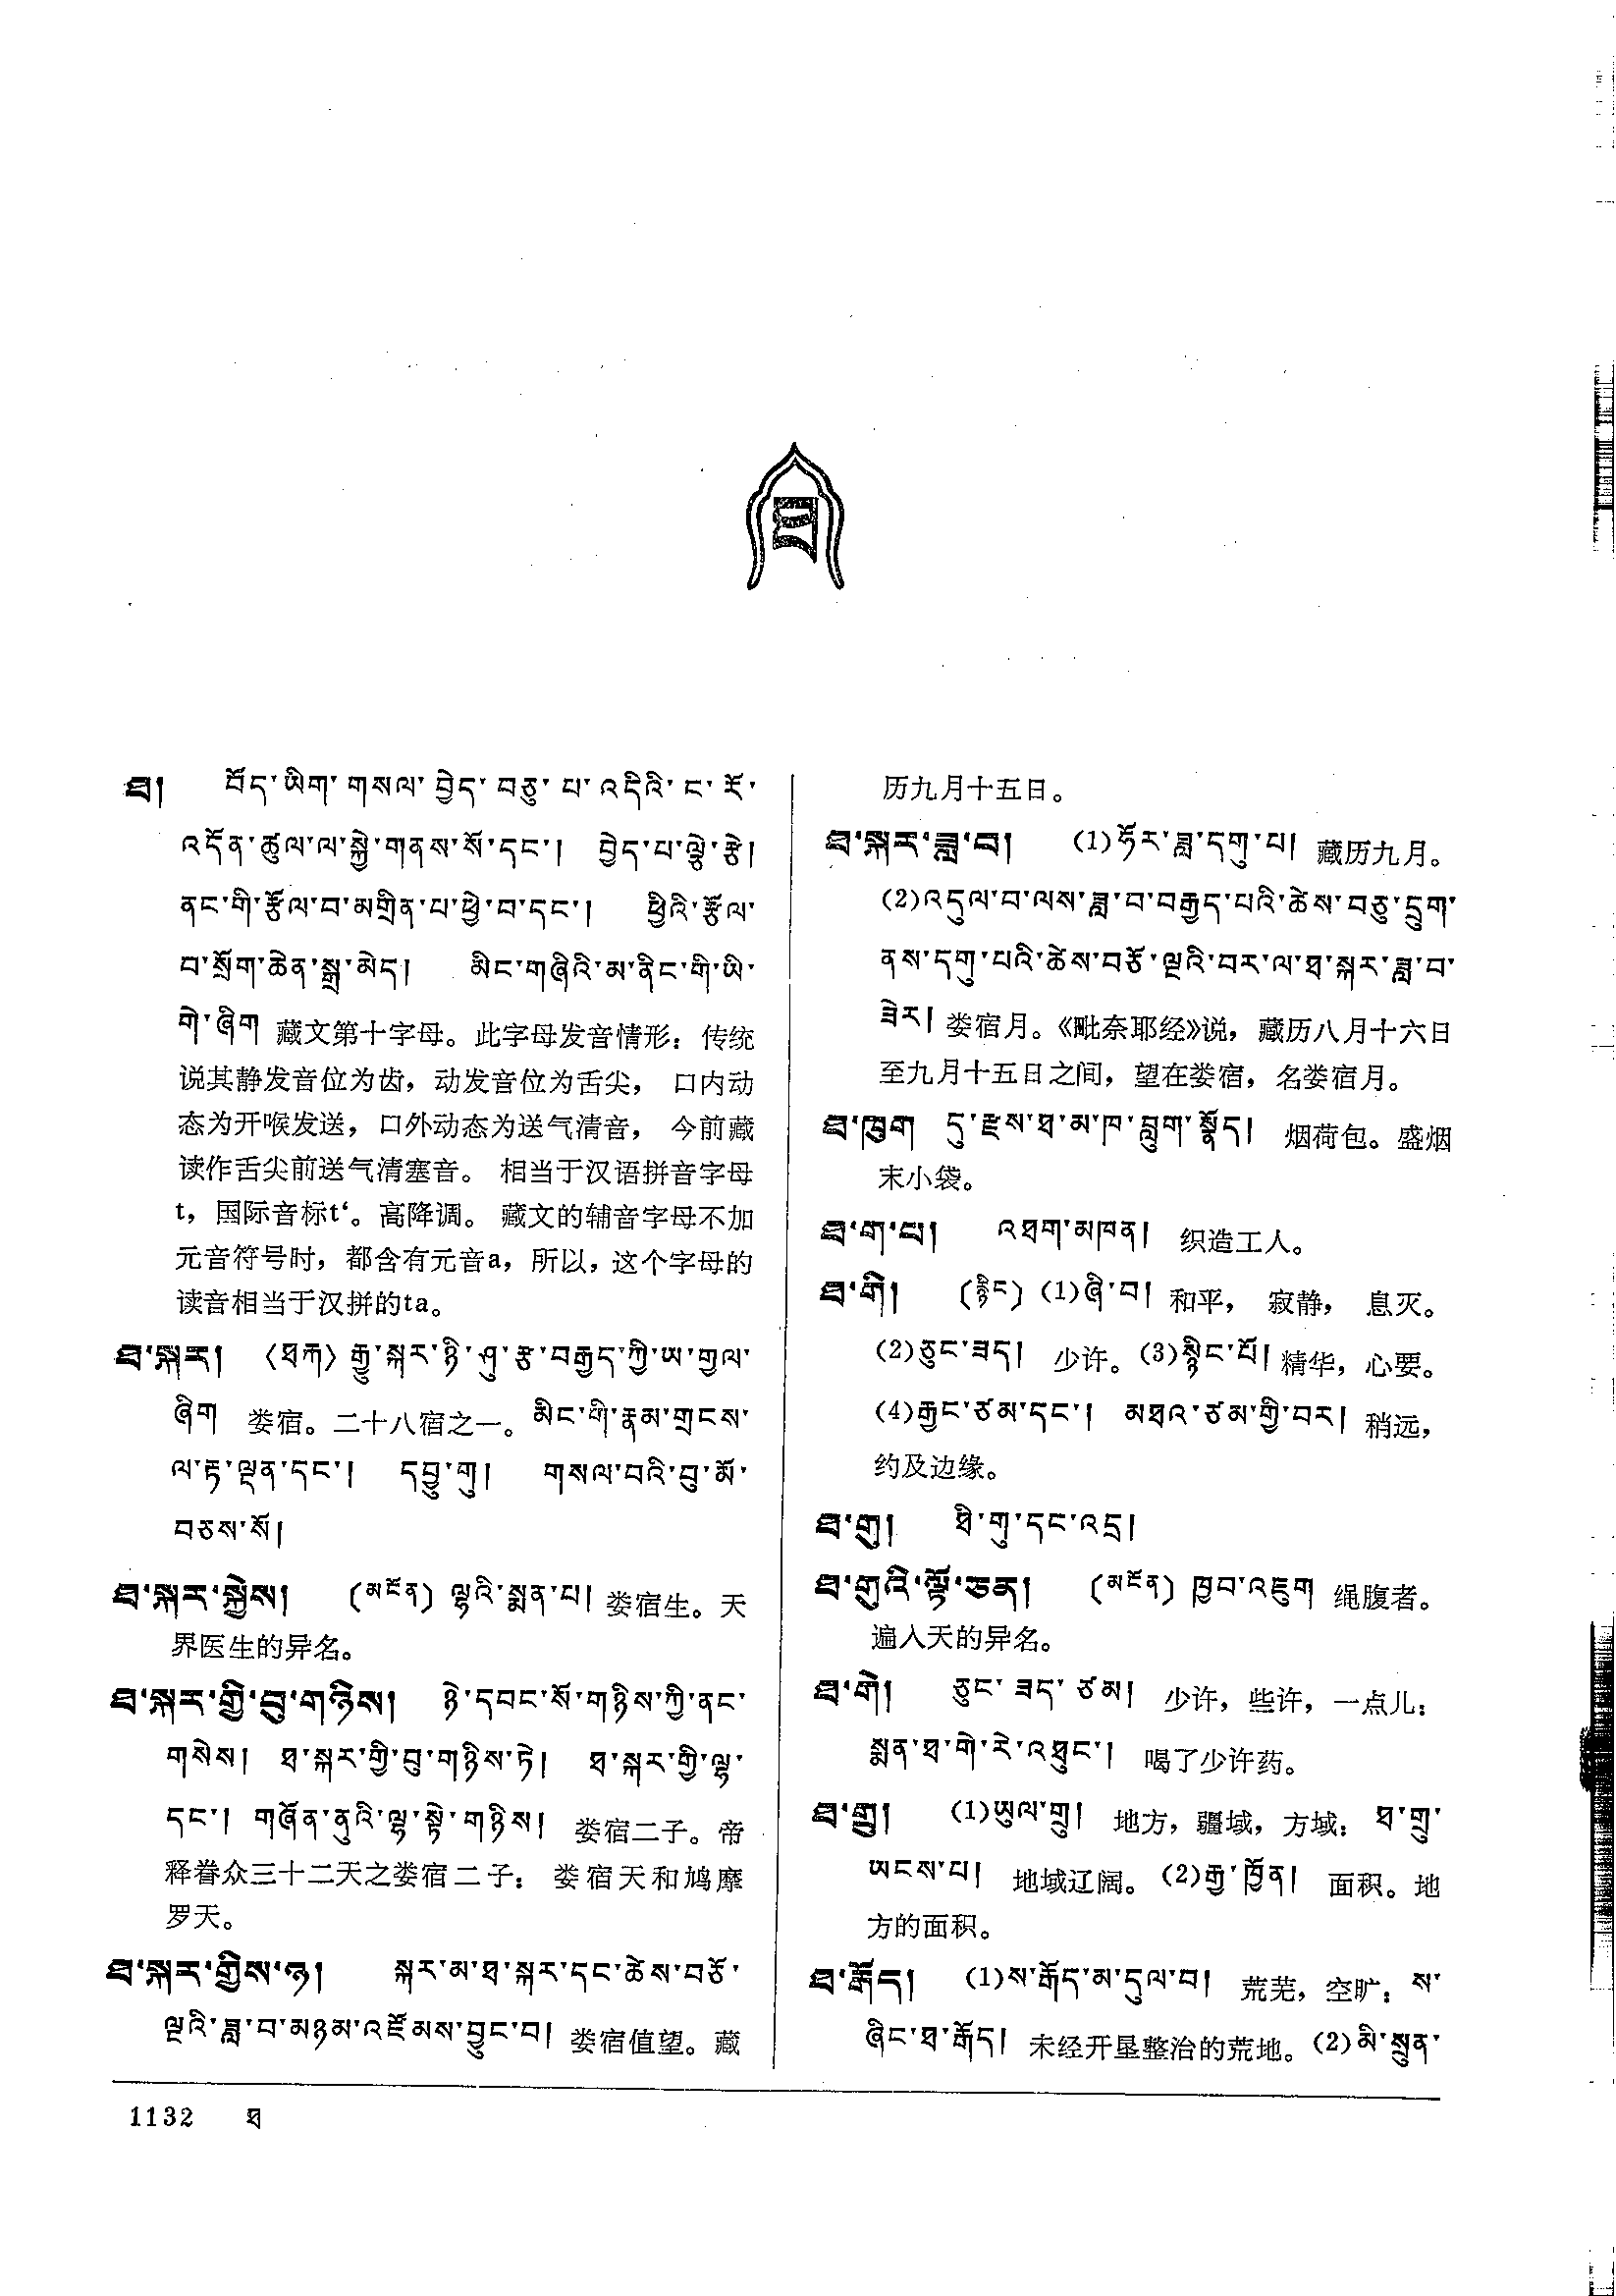 ཐ
ཐ། བོད་ཡིག་གསལ་བྱེད་བཅུ་པ་འདིའི་ང་རོ་
འདོན་ཚུལ་ལ་སྐྱེ་གནས་སོ་དང་། བྱེད་པ་ལྕེ་རྩེ།
ནང་གི་རྩོལ་བ་མགྲིན་པ་ཕྱེ་བ་དང་། ཕྱིའི་རྩོལ་
བ་སྲོག་ཆེན་སྒྲ་མེད། མིང་གཞིའི་མ་ནིང་གི་ཡི་
གེ་ཞིག 藏文第十字母。此字母发音情形：传统
说其静发音位为齿，动发音位为舌尖，口内动
态为开喉发送，口外动态为送气清音，今前藏
读作舌尖前送气清塞音。相当于汉语拼音字母
t，国际音标t‘。高降调。藏文的辅音字母不加
元音符号时，都含有元音a，所以，这个字母的
读音相当于汉拼的ta。
ཐ་སྐར། 〈ཐཀ〉རྒྱུ་སྐར་ཉི་ཤུ་རྩ་བརྒྱད་ཀྱི་ཨ་གྱལ་
ཞིག 娄宿。二十八宿之一。མིང་གི་རྣམ་གྲངས་
ལ་རྟ་ལྡན་དང་། དབྱུ་གུ། གསལ་བའི་བུ་མོ་
བཅས་སོ།
ཐ་སྐར་སྐྱེས། (མངོན) ལྷའི་སྨན་པ། 娄宿生。天
界医生的异名。
ཐ་སྐར་གྱི་བུ་གཉིས། ཉེ་དབང་སོ་གཉིས་ཀྱི་ནང་
གསེས། ཐ་སྐར་གྱི་བུ་གཉིས་ཏེ། ཐ་སྐར་གྱི་ལྷ་
དང་། གཞོན་ནུའི་ལྷ་སྟེ་གཉིས། 娄宿二子。帝
释眷众三十二天之娄宿二子：娄宿天和鸠摩
罗天。
ཐ་སྐར་གྱིས་ཉ། སྐར་མ་ཐ་སྐར་དང་ཚེས་བཅོ་
ལྔའི་ཟླ་བ་མཉམ་འཛོམས་བྱུང་བ། 娄宿值望。藏
历九月十五日。
ཐ་སྐར་ཟླ་བ། (1)ཧོར་ཟླ་དགུ་པ། 藏历九月。
(2)འདུལ་བ་ལས་ཟླ་བ་བརྒྱད་པའི་ཚེས་བཅུ་དྲུག་
ནས་དགུ་པའི་ཚེས་བཅོ་ལྔའི་བར་ལ་ཐ་སྐར་ཟླ་བ་
ཟེར། 娄宿月。《毗奈耶经》说，藏历八月十六日
至九月十五日之间，望在娄宿，名娄宿月。
ཐ་ཁུག དུ་རྫས་ཐ་མ་ཁ་བླུག་སྣོད། 烟荷包。盛烟
末小袋。
ཐ་ག་པ། འཐག་མཁན། 织造工人。
ཐ་གི། (རྙིང) (1)ཞི་བ། 和平，寂静，息灭。
(2)ཅུང་ཟད། 少许。(3)སྙིང་པོ། 精华，心要。
(4)རྒྱང་ཙམ་དང་། མཐའ་ཙམ་གྱི་བར། 稍远，
约及边缘。
ཐ་གུ། ཐི་གུ་དང་འདྲ།
ཐ་གུའི་ལྟོ་ཅན། (མངོན) ཁྱབ་འཇུག 绳腹者。
遍入天的异名。
ཐ་གེ། ཅུང་ཟད་ཙམ། 少许，些许，一点儿：
སྨན་ཐ་གེ་རེ་འཐུང་། 喝了少许药。
ཐ་གྲུ། (1)ཡུལ་གྲུ། 地方，疆域，方域：ཐ་གྲུ་
ཡངས་པ། 地域辽阔。(2)རྒྱ་ཁྱོན། 面积。地
方的面积。
ཐ་རྒོད། (1)ས་རྒོད་མ་དུལ་བ། 荒芜，空旷：ས་
ཞིང་ཐ་རྒོད། 未经开垦整治的荒地。(2)མི་སྲུན་
1132 ཐ